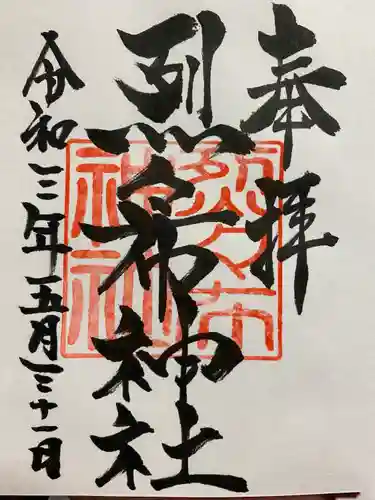 奉拝
烈々布神社
令和三年五月三十一日